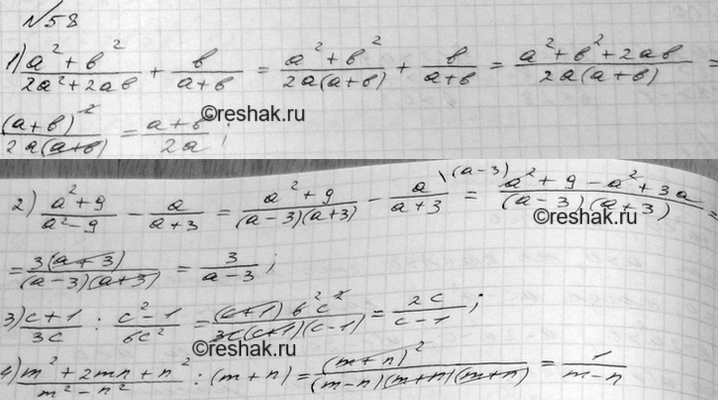 №58
1) (a² + b²)/(2a² + 2ab) + b/(a+b) = (a² + b²)/(2a(a+b)) + b/(a+b) = (a² + b² + 2ab)/(2a(a+b)) =
(a+b)²/(2a(a+b)) = (a+b)/(2a);
©reshak.ru
2) (a² + 9)/(a² - 9) - a/(a+3) = (a² + 9)/((a-3)(a+3)) - a/(a+3) \(a-3) = (a² + 9 - a² + 3a)/((a-3)(a+3)) =
©reshak.ru
= 3(a+3)/((a-3)(a+3)) = 3/(a-3);
3) (c+1)/(3c) : (c² - 1)/(6c²) = (c+1) 6²c²/(3c(c+1)(c-1)) = 2c/(c-1);
©reshak.ru
4) (m² + 2mn + n²)/(m² - n²) : (m+n) = (m+n)²/((m-n)(m+n)(m+n)) = 1/(m-n)